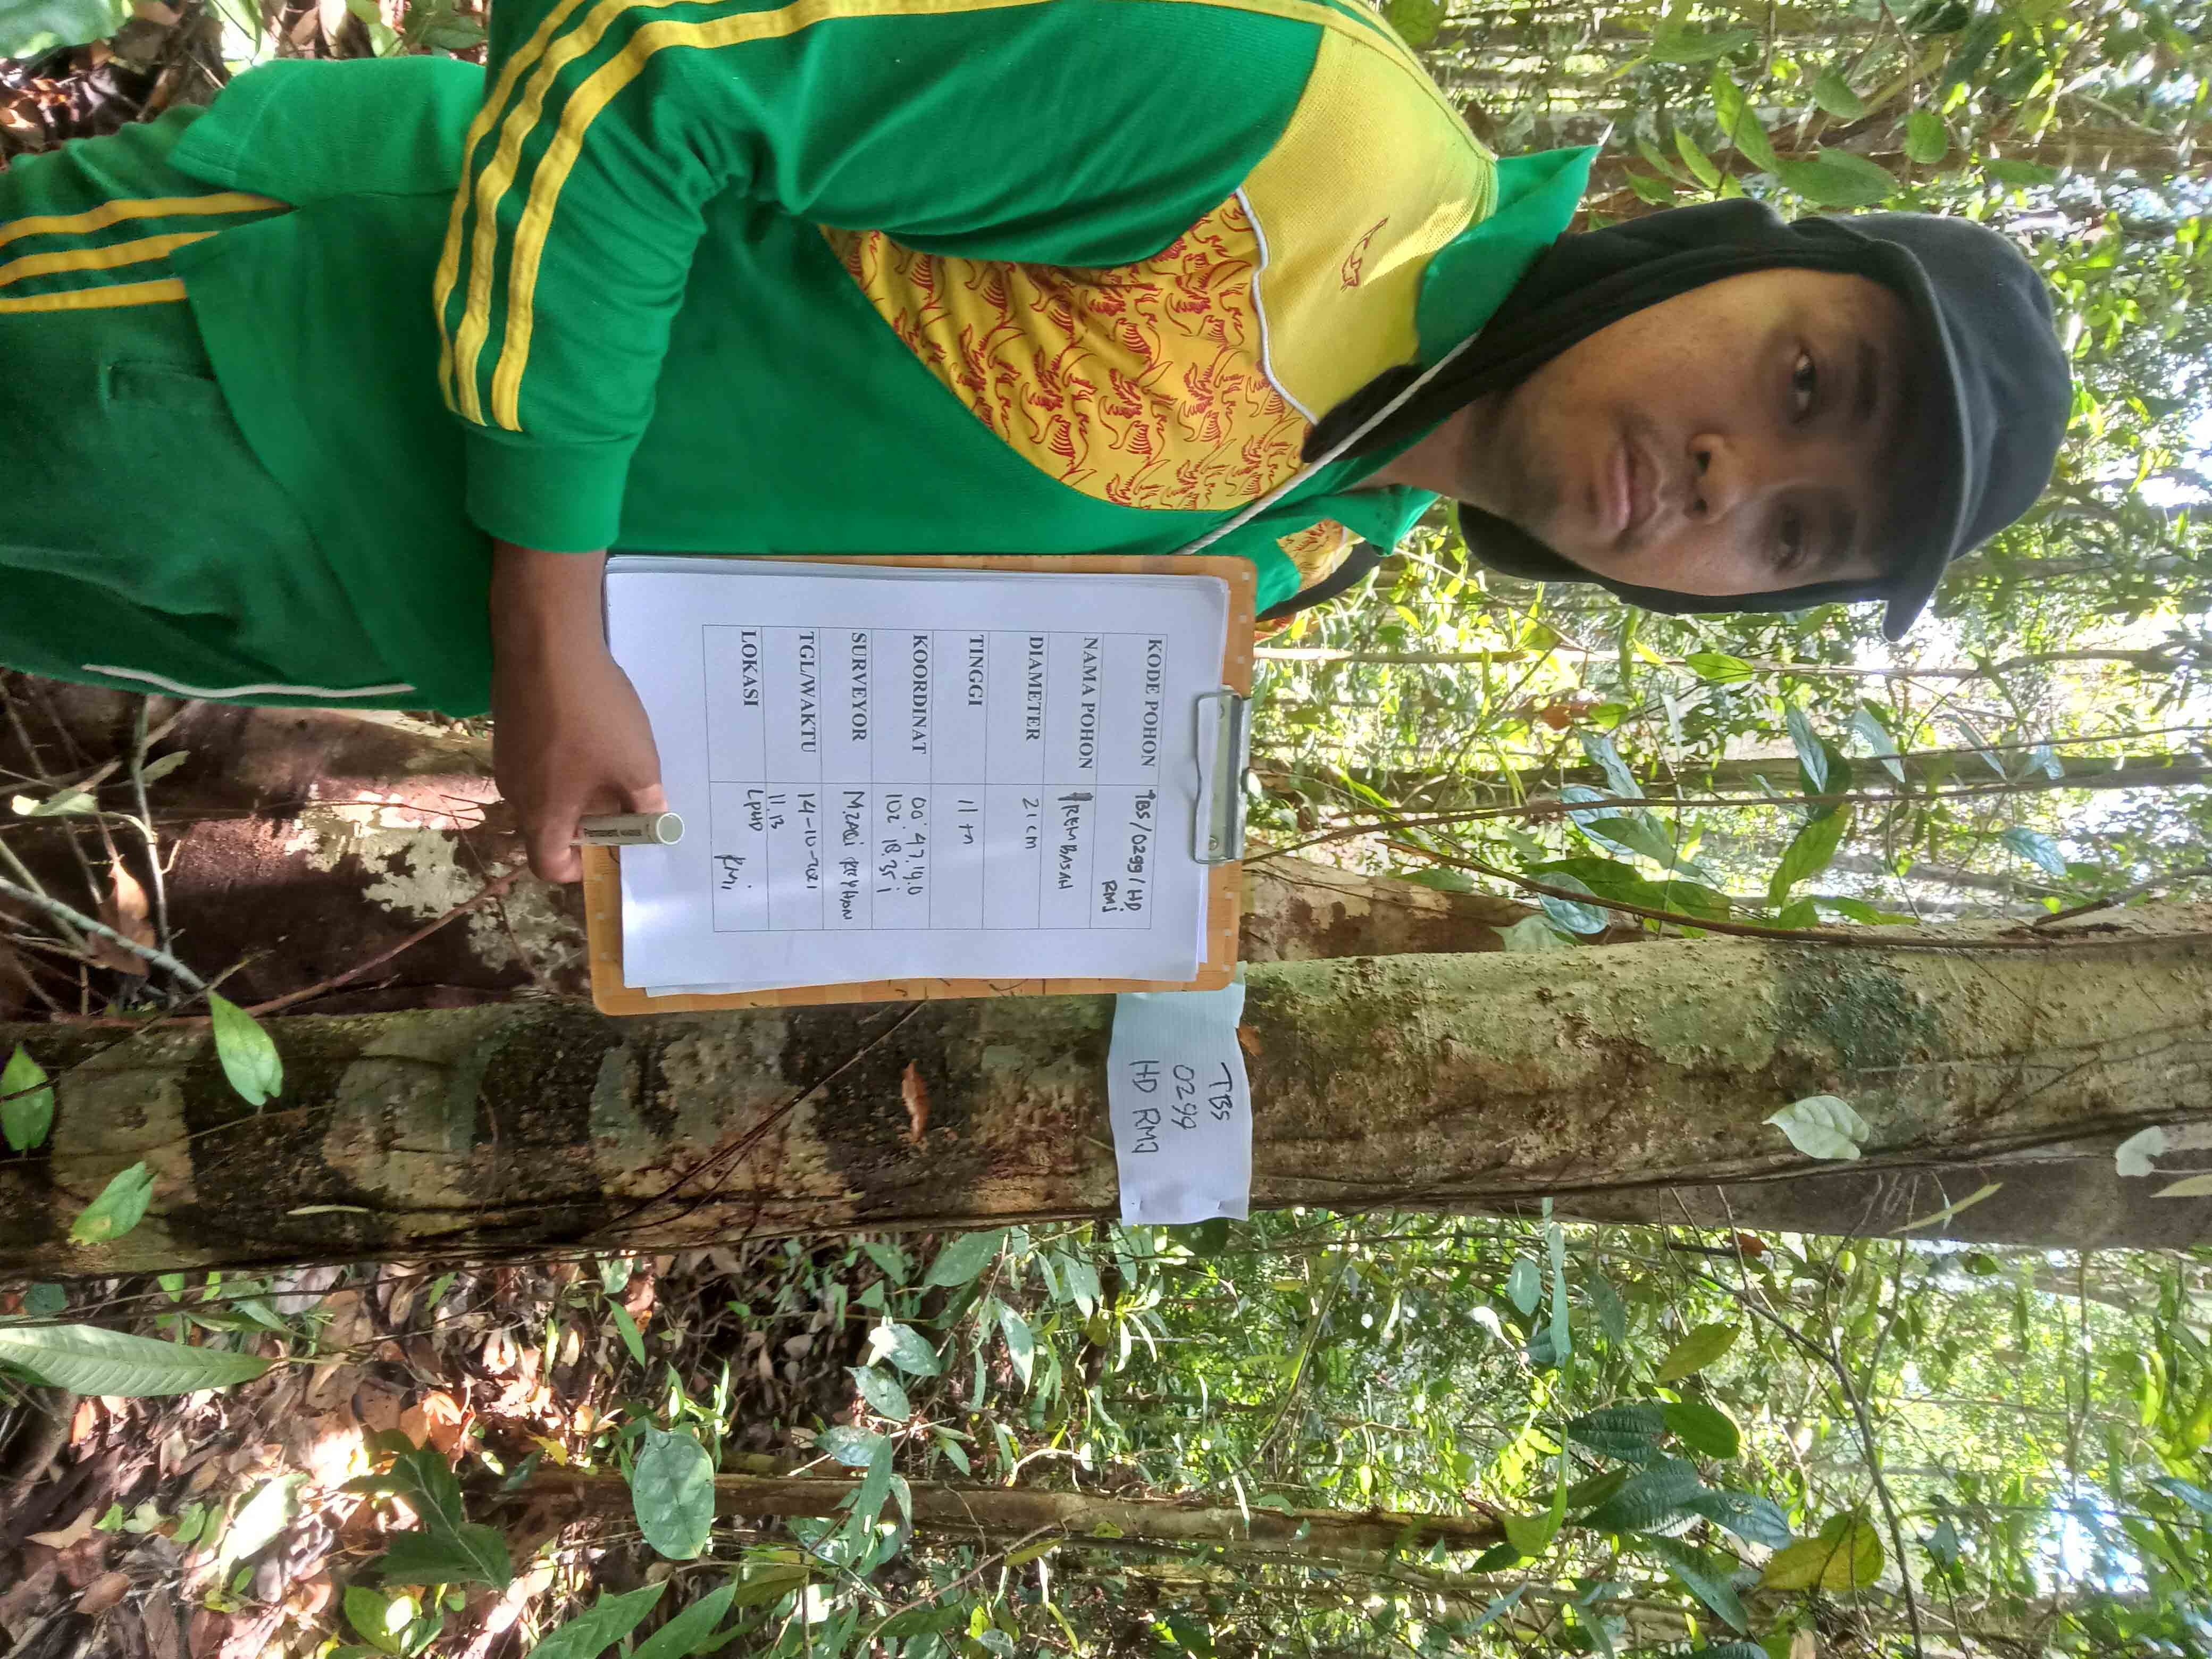 KODE POHON TBS/0299/HD
RMJ
NAMA POHON TREMBASAH
DIAMETER 21 cm
TINGGI 11 m
KOORDINAT 00° 47.19.0
102° 18.35 j
SURVEYOR M.ZAQI REYHAN
TGL/WAKTU 14-10-2021
11.13
LOKASI LPHD
RMj
TBS
0299
HD RMJ